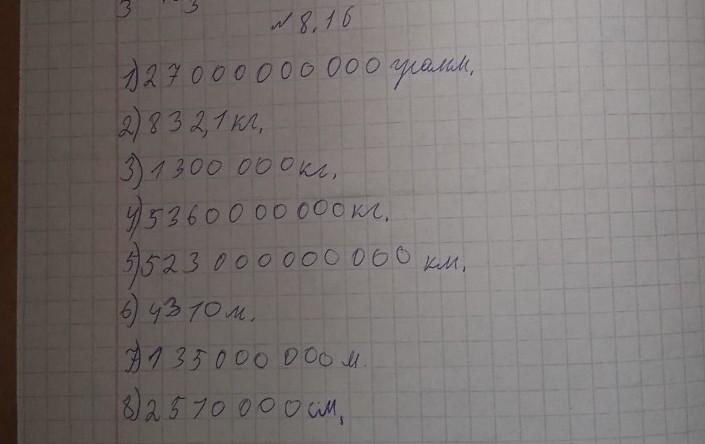 3 3
№ 8.16
1) 27 000 000 000 грамм.
2) 832,1 кг.
3) 1300 000 кг.
4) 5360 000 000 кг.
5) 523 000 000 000 км.
6) 4310 м.
7) 135 000 000 м.
8) 2510 000 см.